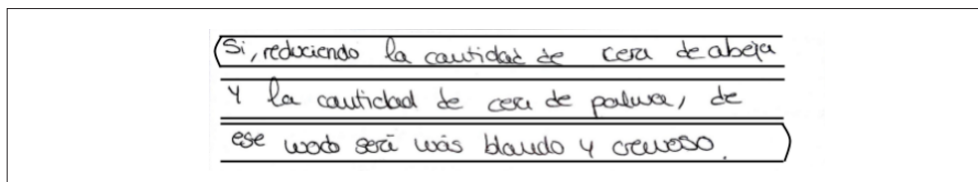 Si, reduciendo la cantidad de cera de abeja
y la cantidad de cera de palma, de
ese modo será más blando y cremoso.